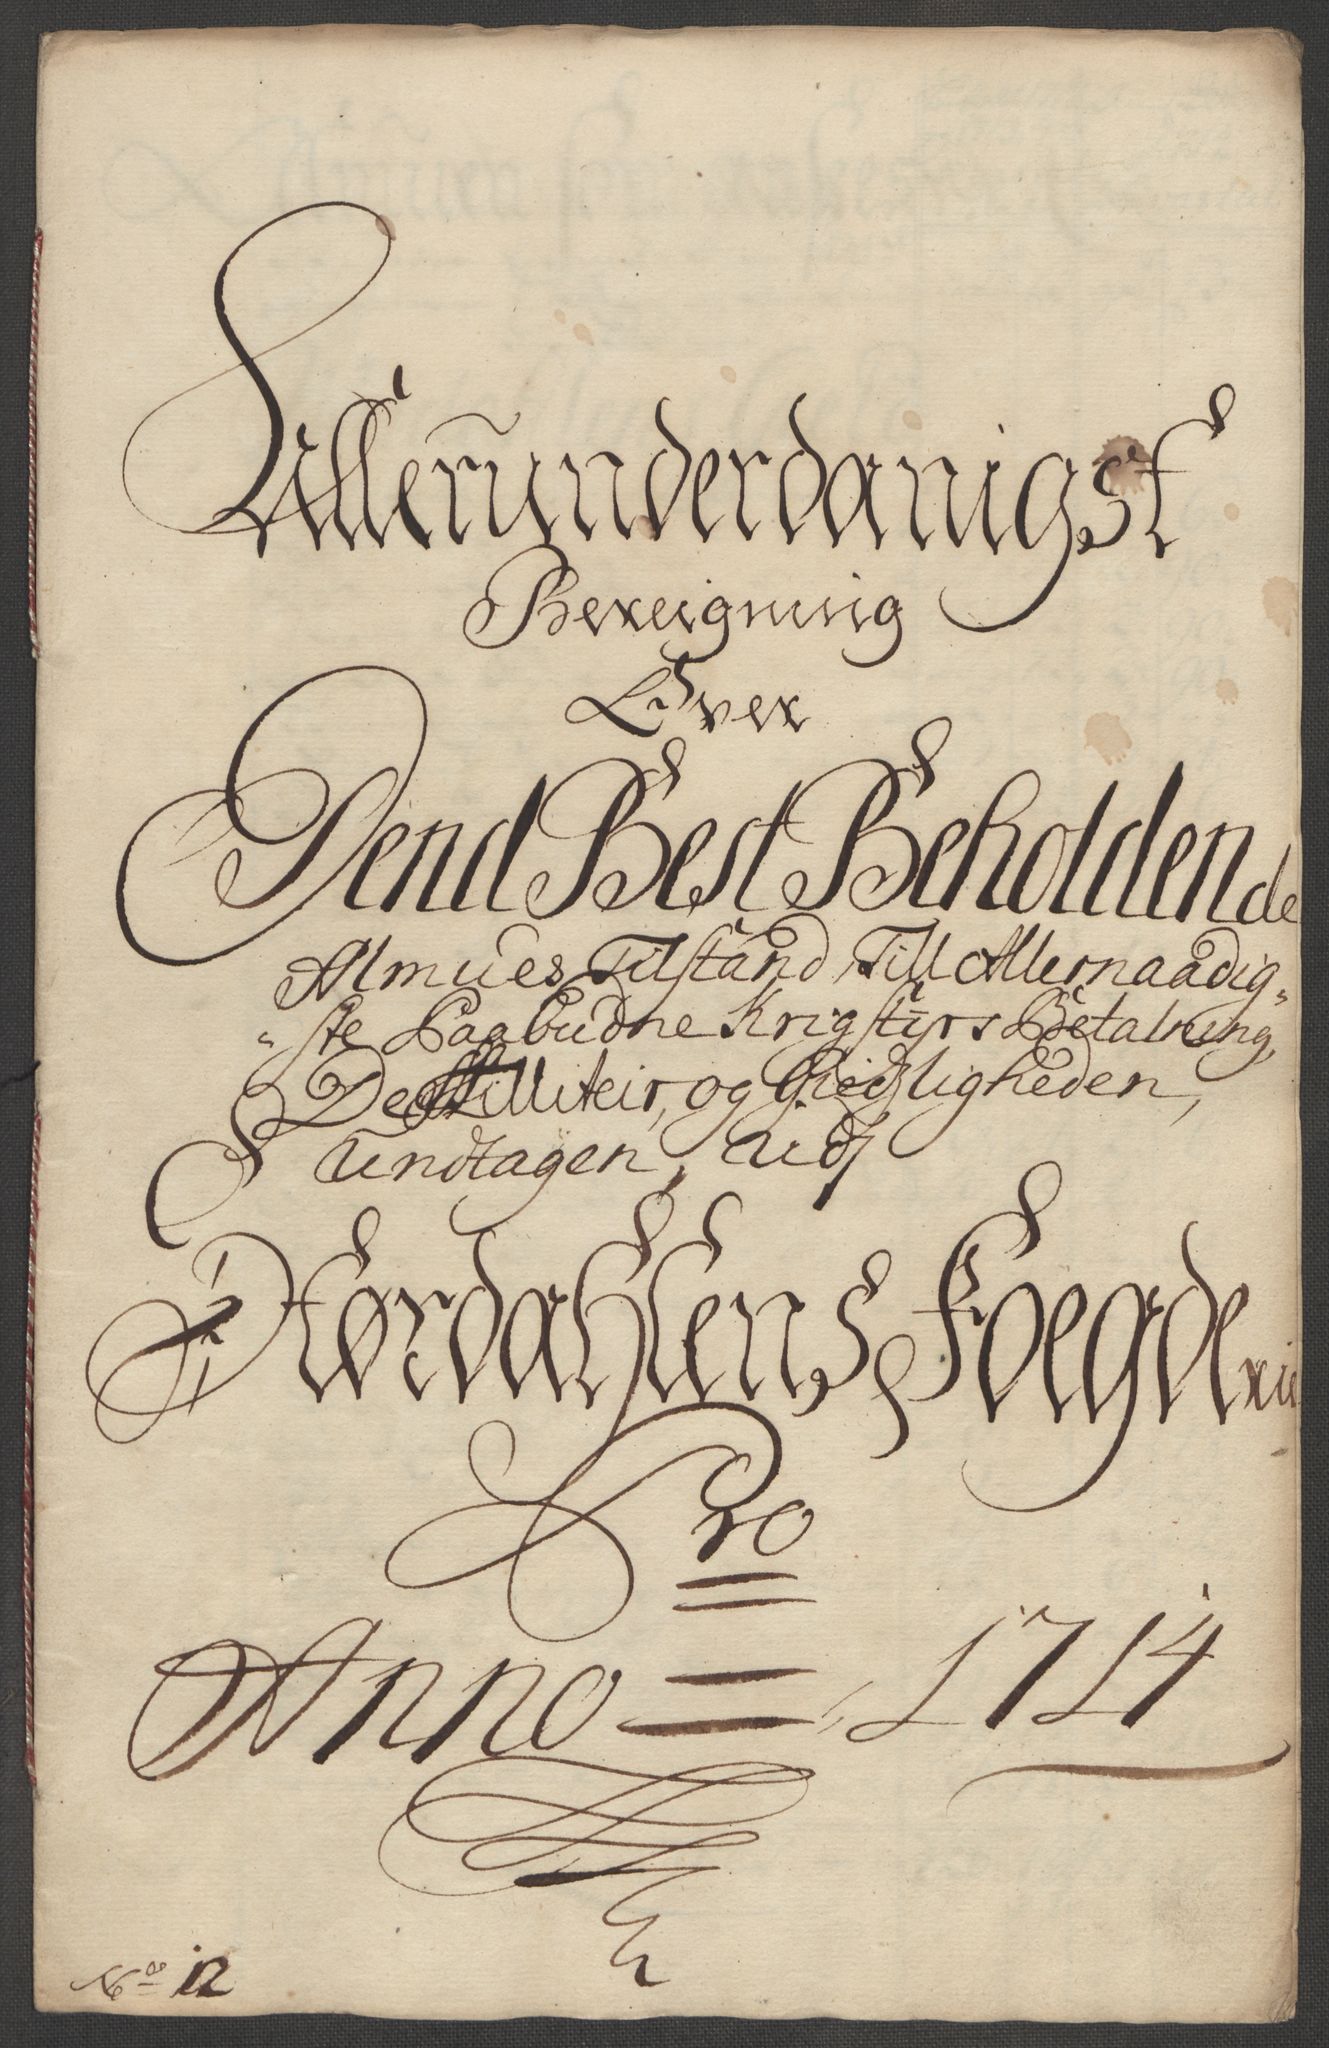 Allerunderdanigst
Bereigning
Over
Dend Best Beholdende
Almues Tilstand, Till Allernaadig„
„ste Paabudne Krigstyrs Betalning,
De Militeir, og Giestligheden,
Undtagen, udj
Størdahlens Foegderie
Pro
Anno 1714
No 12